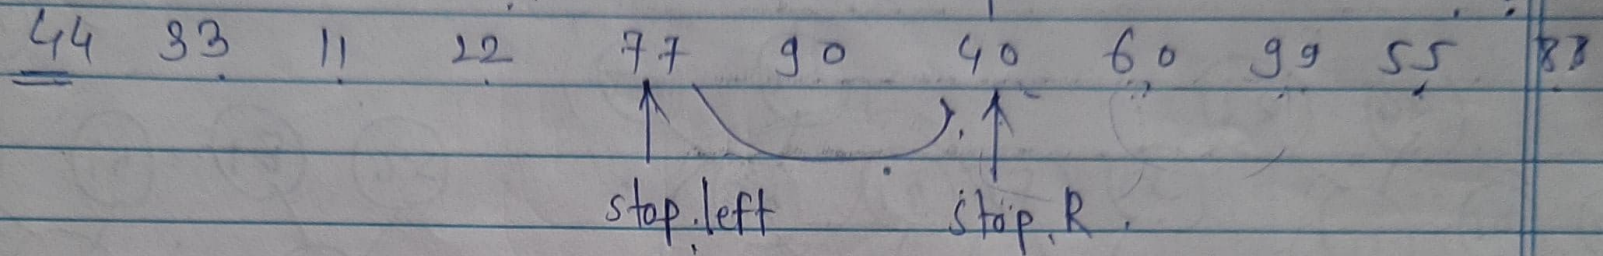 44 33 11 22 77 90 40 60 99 55 88
stop.left stop.R.